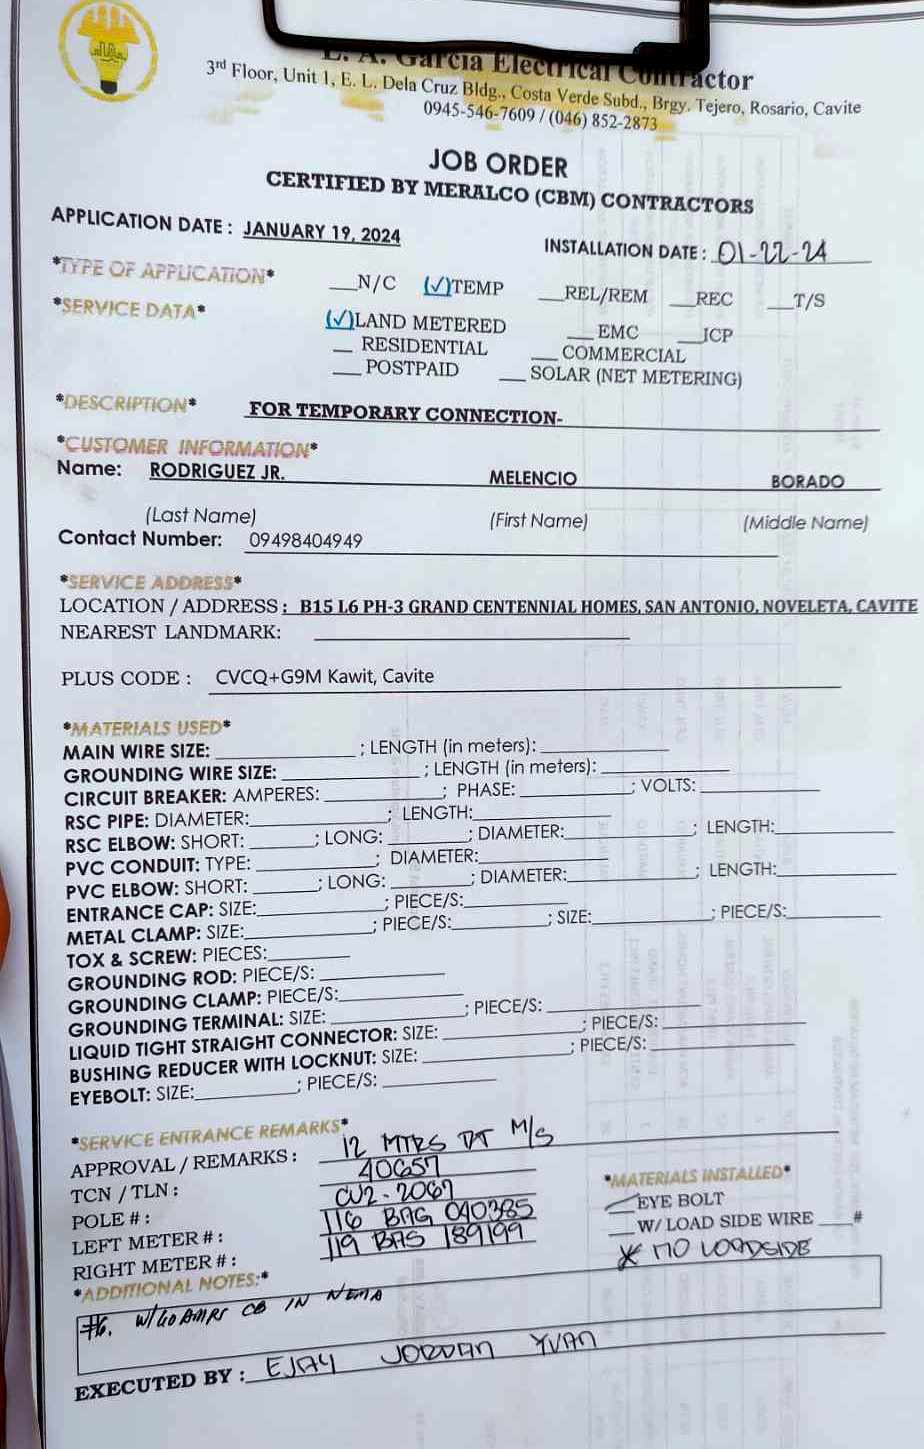 L. A. Garcia Electrical Contractor
3rd Floor, Unit 1, E. L. Dela Cruz Bldg., Costa Verde Subd., Brgy. Tejero, Rosario, Cavite
0945-546-7609 / (046) 852-2873
JOB ORDER
CERTIFIED BY MERALCO (CBM) CONTRACTORS
APPLICATION DATE : JANUARY 19, 2024 INSTALLATION DATE : 01-22-24
*TYPE OF APPLICATION* __N/C (✓)TEMP __REL/REM __REC __T/S
*SERVICE DATA* (✓)LAND METERED __EMC __ICP
__ RESIDENTIAL __ COMMERCIAL
__ POSTPAID __ SOLAR (NET METERING)
*DESCRIPTION* FOR TEMPORARY CONNECTION-
*CUSTOMER INFORMATION*
Name: RODRIGUEZ JR. MELENCIO BORADO
(Last Name) (First Name) (Middle Name)
Contact Number: 09498404949
*SERVICE ADDRESS*
LOCATION / ADDRESS : B15 L6 PH-3 GRAND CENTENNIAL HOMES, SAN ANTONIO, NOVELETA, CAVITE
NEAREST LANDMARK: ____
PLUS CODE : CVCQ+G9M Kawit, Cavite
*MATERIALS USED*
MAIN WIRE SIZE: ____; LENGTH (in meters): ____
GROUNDING WIRE SIZE: ____; LENGTH (in meters): ____
CIRCUIT BREAKER: AMPERES: ____; PHASE: ____; VOLTS: ____
RSC PIPE: DIAMETER: ____; LENGTH: ____
RSC ELBOW: SHORT: ____; LONG: ____; DIAMETER: ____; LENGTH: ____
PVC CONDUIT: TYPE: ____; DIAMETER: ____
PVC ELBOW: SHORT: ____; LONG: ____; DIAMETER: ____; LENGTH: ____
ENTRANCE CAP: SIZE: ____; PIECE/S: ____
METAL CLAMP: SIZE: ____; PIECE/S: ____; SIZE: ____; PIECE/S: ____
TOX & SCREW: PIECES: ____
GROUNDING ROD: PIECE/S: ____
GROUNDING CLAMP: PIECE/S: ____
GROUNDING TERMINAL: SIZE: ____; PIECE/S: ____
LIQUID TIGHT STRAIGHT CONNECTOR: SIZE: ____; PIECE/S: ____
BUSHING REDUCER WITH LOCKNUT: SIZE: ____; PIECE/S: ____
EYEBOLT: SIZE: ____; PIECE/S: ____
*SERVICE ENTRANCE REMARKS*
APPROVAL / REMARKS : 12 MTRS DT M/S
TCN / TLN : 40657
POLE # : CV2-2067
LEFT METER # : 116 BAG 040385
RIGHT METER # : 119 BAS 189199
*MATERIALS INSTALLED*
__EYE BOLT
__W/ LOAD SIDE WIRE ____#
* NO LOADSIDE
*ADDITIONAL NOTES:*
#6. W/60 AMPS CB IN NEMA
EXECUTED BY : EJAY JORDAN YVAN